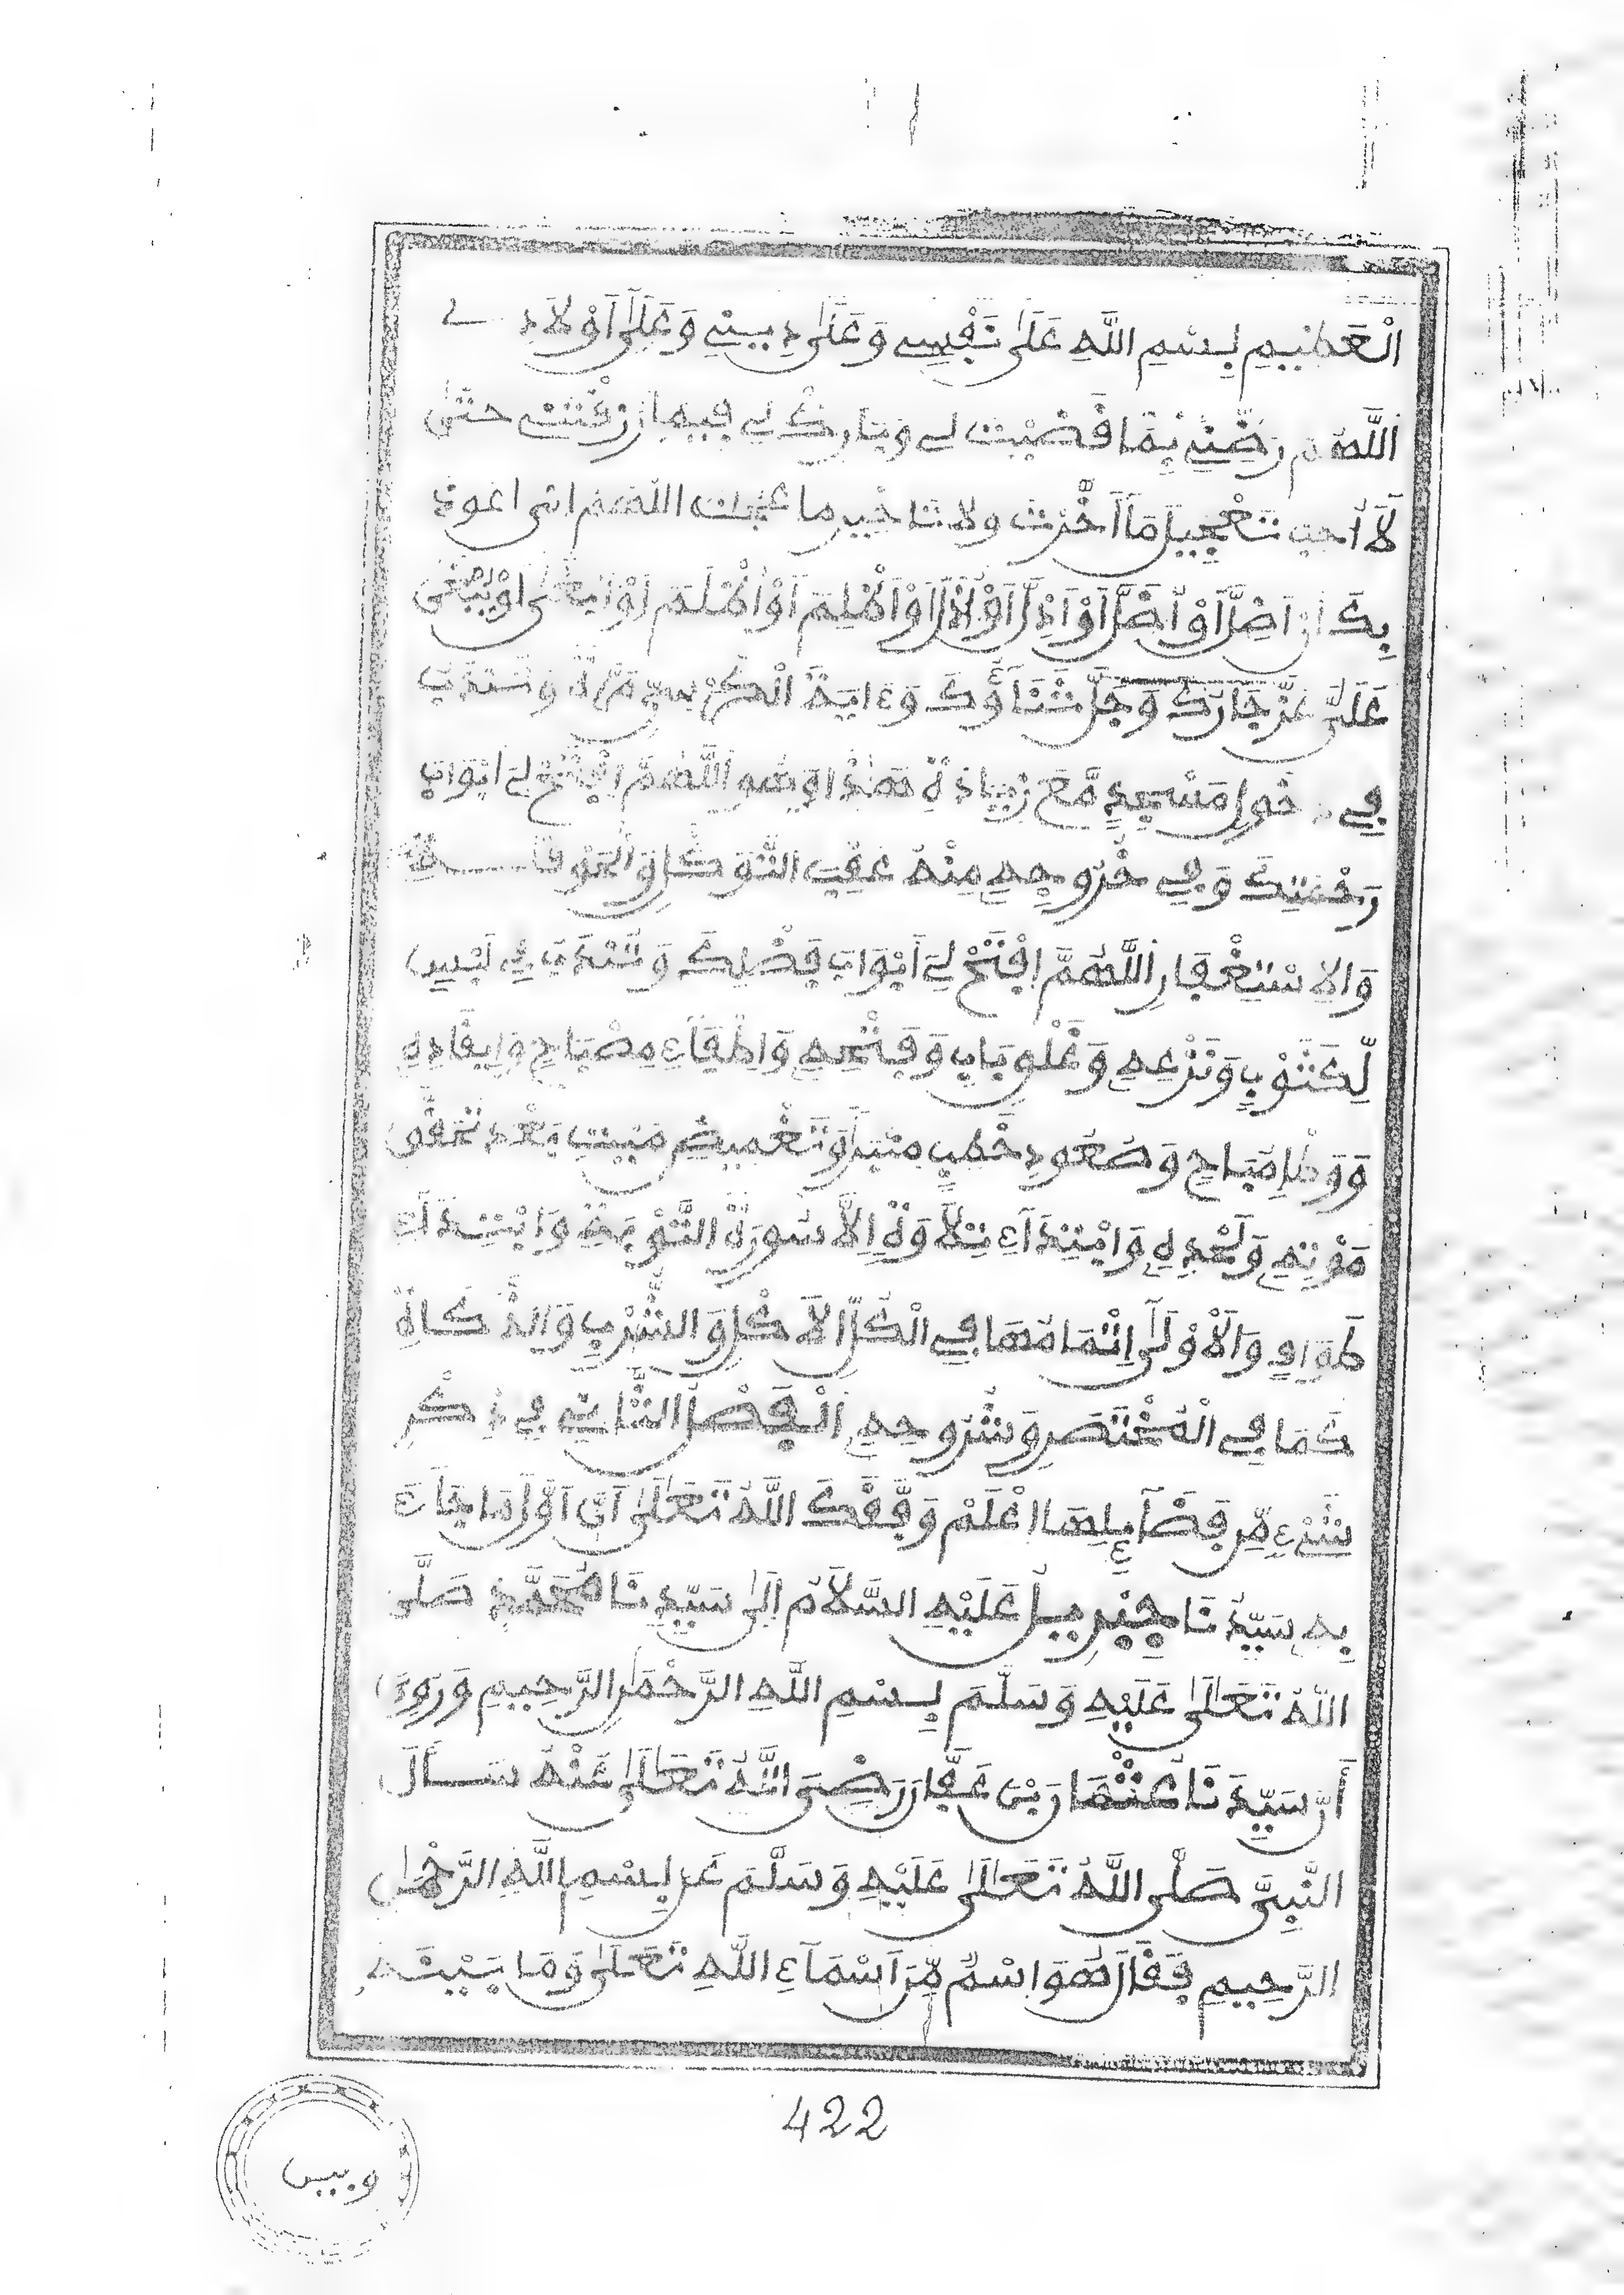 الْعَظِيمِ بِسْمِ اللَّهِ عَلَىٰ نَفْسِي وَعَلَىٰ دِينِي وَعَلَىٰ أَوْلَادِي
اللَّهُمَّ رَضِّنِي بِمَا قَضَيْتَ لِي وَبَارِكْ لِي فِيمَا رَزَقْتَنِي حَتَّىٰ
لَا أُحِبَّ تَعْجِيلَ مَا أَخَّرْتَ وَلَا تَأْخِيرَ مَا عَجَّلْتَ اللَّهُمَّ إِنِّي أَعُوذُ
بِكَ أَنْ أَضِلَّ أَوْ أُضَلَّ أَوْ أَذِلَّ أَوْ أُذَلَّ أَوْ أَظْلِمَ أَوْ أُظْلَمَ أَوْ أَبْغَىٰ أَوْ يُبْغَىٰ
عَلَيَّ عَزَّ جَارُكَ وَجَلَّ ثَنَاؤُكَ وَءَايَةَ الْكُرْسِيِّ مَرَّةً وَتُنْدَبُ
فِي دُخُولِ مَسْجِدٍ مَّعَ زِيَادَةِ هَٰذَا وَهُوَ اللَّهُمَّ افْتَحْ لِيَ أَبْوَابَ
رَحْمَتِكَ وَفِي خُرُوجِهِ مِنْهُ عَقِبَ التَّوَكُّلِ وَالْحَوْقَلَةِ
وَالِاسْتِغْفَارِ اللَّهُمَّ افْتَحْ لِيَ أَبْوَابَ فَضْلِكَ وَتُنْدَبُ فِي لَبْسٍ
لِّكَثَوْبٍ وَنَزْعِهِ وَغَلْقِ بَابٍ وَفَتْحِهِ وَإِطْفَاءِ مِصْبَاحٍ وَإِيقَادِهِ
وَوَطْءٍ مُّبَاحٍ وَصُعُودِ خَطِيبٍ مِنْبَرًا وَتَغْمِيضِ مَيِّتٍ بَعْدَ تَحَقُّقِ
مَوْتِهِ وَلَحْدِهِ وَابْتِدَاءِ تِلَاوَةٍ إِلَّا سُورَةَ التَّوْبَةِ وَابْتِدَاءِ
طَوَافٍ وَالْأَوْلَىٰ إِتْمَامُهَا فِي الْكُلِّ إِلَّا الْأَكْلَ وَالشُّرْبَ وَالذَّكَاةَ
كَمَا فِي الْمُخْتَصَرِ وَشُرُوحِهِ الْفَصْلُ الثَّانِي فِي ذِكْرِ
شَيْءٍ مِّن فَضَائِلِهَا اعْلَمْ وَفَّقَكَ اللَّهُ تَعَالَىٰ أَنَّ أَوَّلَ مَا جَاءَ
بِهِ سَيِّدُنَا جِبْرِيلُ عَلَيْهِ السَّلَامُ إِلَىٰ سَيِّدِنَا مُحَمَّدٍ صَلَّى
اللَّهُ تَعَالَىٰ عَلَيْهِ وَسَلَّمَ بِسْمِ اللَّهِ الرَّحْمَٰنِ الرَّحِيمِ وَرُوِيَ
أَنَّ سَيِّدَنَا عُثْمَانَ بْنَ عَفَّانَ رَضِيَ اللَّهُ تَعَالَىٰ عَنْهُ سَأَلَ
النَّبِيَّ صَلَّى اللَّهُ تَعَالَىٰ عَلَيْهِ وَسَلَّمَ عَن بِسْمِ اللَّهِ الرَّحْمَٰنِ
الرَّحِيمِ فَقَالَ هُوَ اسْمٌ مِّنْ أَسْمَاءِ اللَّهِ تَعَالَىٰ وَمَا بَيْنَهُ
422